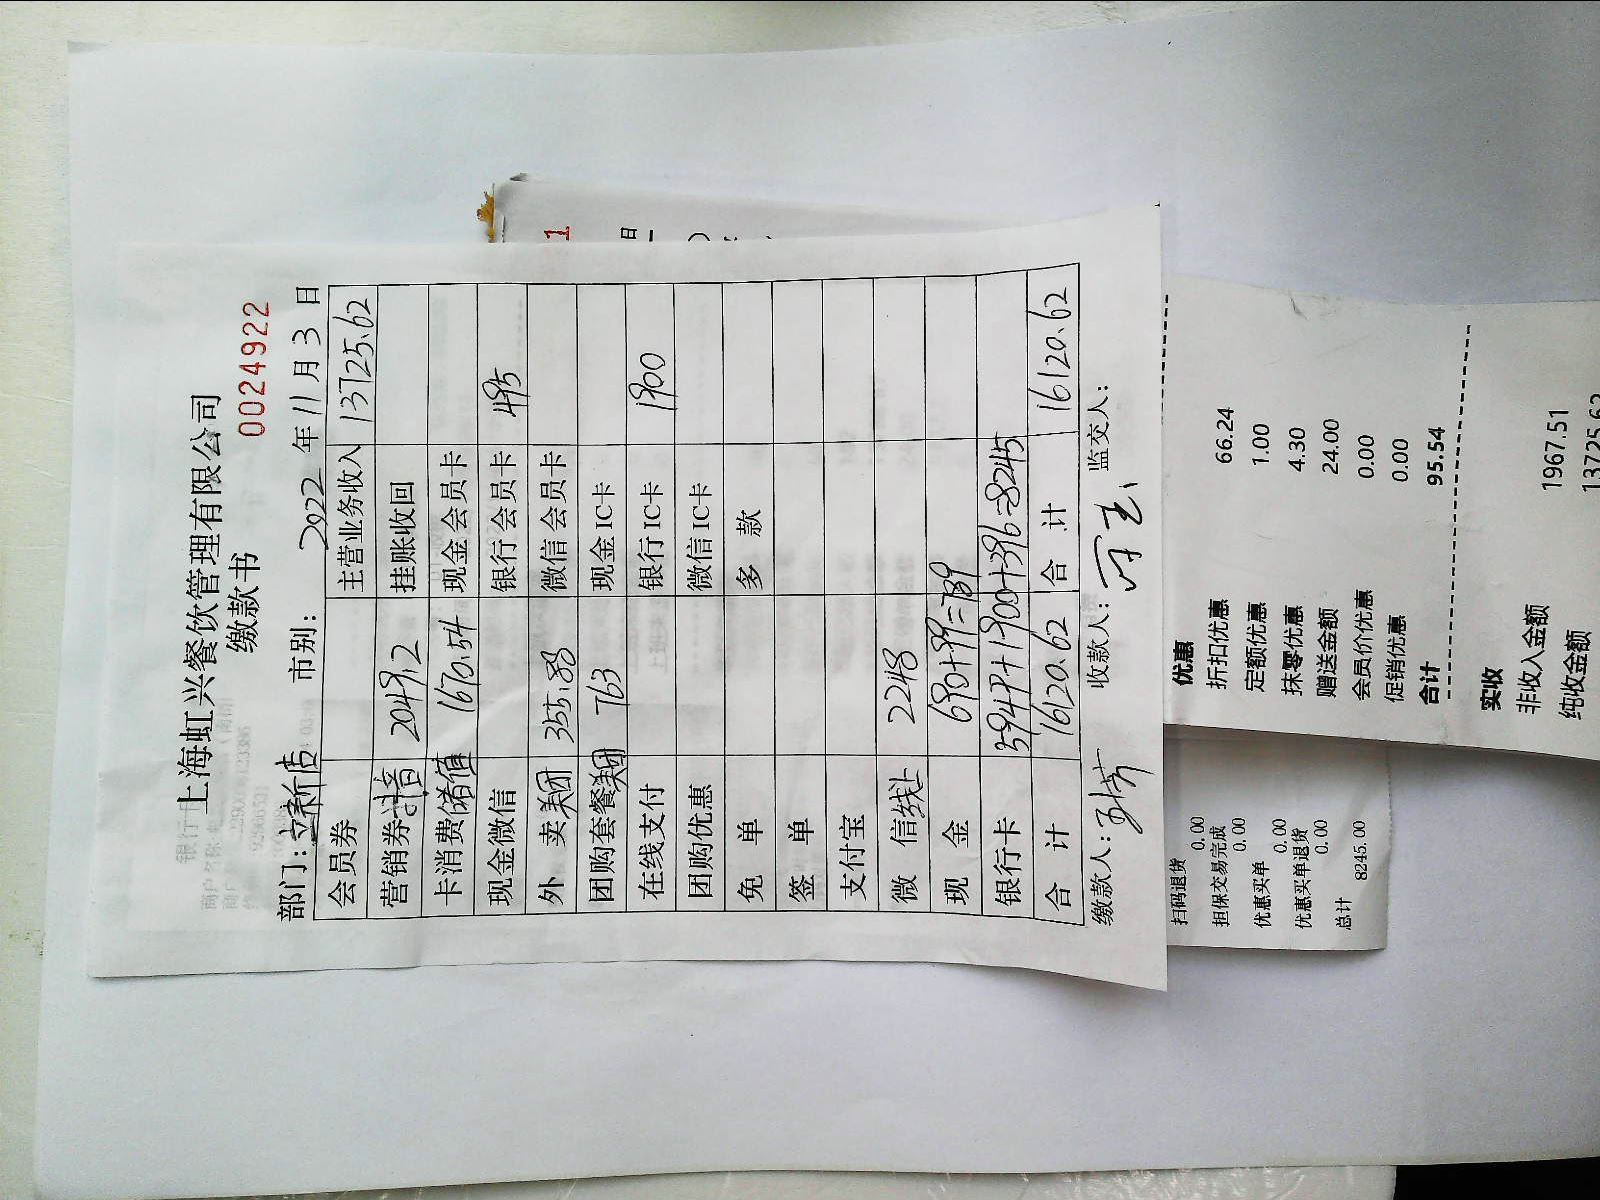 上海虹兴餐饮管理有限公司
缴款书
0024922
部门: 立新店 市别: 2022 年 11 月 3 日
会员券 主营业务收入 13725.62
营销券抖音 2049.2 挂账收回
卡消费储值 1670.54 现金会员卡
现金微信 银行会员卡 495
外 卖美团 355.88 微信会员卡
团购套餐美团 763 现金IC卡
在线支付 银行IC卡 1900
团购优惠 微信IC卡
免 单 多 款
签 单
支付宝
微 信线上 2248
现 金 690+99=789
银行卡 5949+1900+396=8245
合 计 16120.62 合 计 16120.62
缴款人: 收款人: 监交人:
优惠
折扣优惠 66.24
定额优惠 1.00
抹零优惠 4.30
赠送金额 24.00
会员价优惠 0.00
促销优惠 0.00
合计 95.54
实收
非收入金额 1967.51
纯收金额 13725.62
扫码退货
0.00
担保交易完成
0.00
优惠买单
0.00
优惠买单退货
0.00
总计 8245.00
1
日